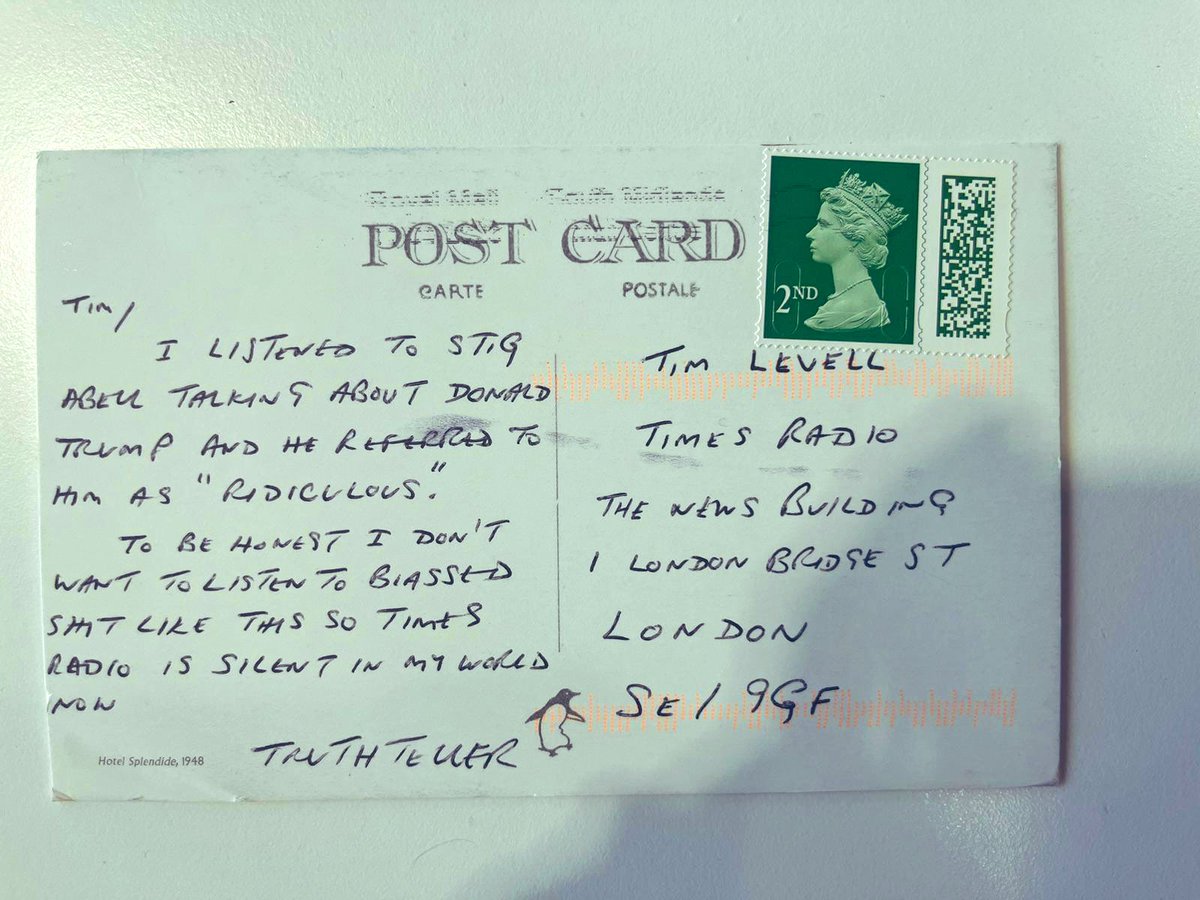 Royal Mail South Midlands
POST CARD
CARTE POSTALE
2ND
TIM/
I LISTENED TO STIG
ABELL TALKING ABOUT DONALD
TRUMP AND HE REFERRED TO
HIM AS "RIDICULOUS."
TO BE HONEST I DON'T
WANT TO LISTEN TO BIASSED
SHIT LIKE THIS SO TIMES
RADIO IS SILENT IN MY WORLD
NOW
TRUTH TELLER
Hotel Splendide, 1948
TIM LEVELL
TIMES RADIO
THE NEWS BUILDING
1 LONDON BRIDGE ST
LONDON
SE1 9GF